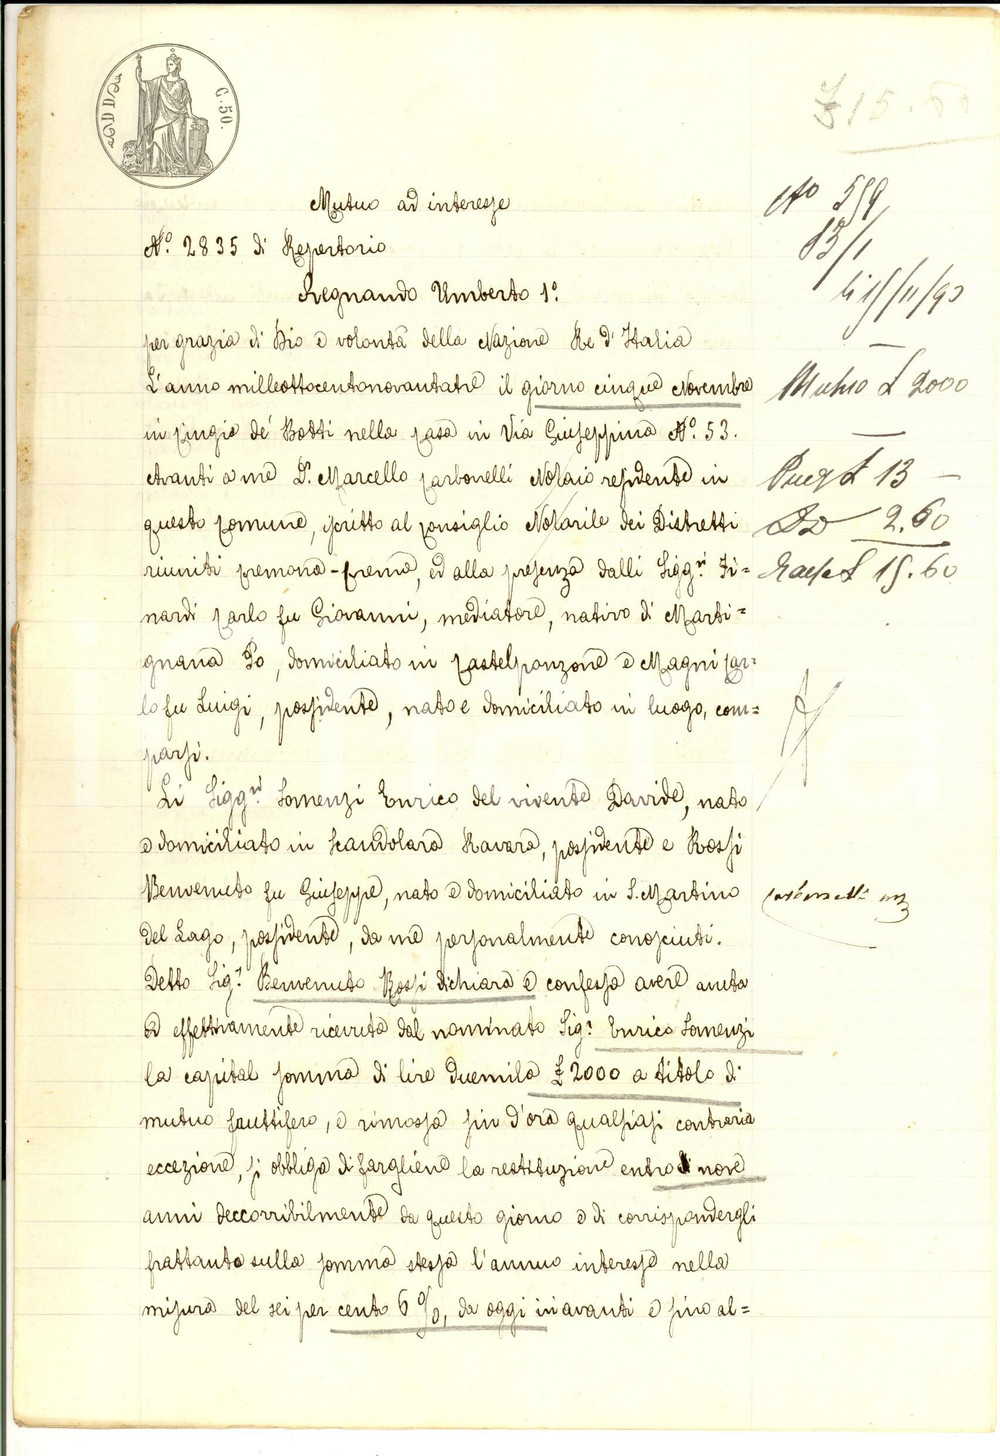 C. 50.
£ 15.60
Mutuo ad interesse
N.° 2835 di Repertorio
Regnando Umberto 1.°
per grazia di Dio e volontà della Nazione Re d'Italia
L'anno milleottocentonovantatre il giorno cinque Novembre
in Cingia de' Botti nella casa in Via Giuseppina N.° 53.
Avanti a me D.r Marcello Carbonelli Notaio residente in
questo Comune, iscritto al Consiglio Notarile dei Distretti
riuniti Cremona-Crema, ed alla presenza dalli Sigg.ri Fi=
nardi Carlo fu Giovanni, mediatore, nativo di Marti-
gnana Po, domiciliato in Castelponzone e Magni Car-
lo fu Luigi, possidente, nato e domiciliato in luogo, com=
parsi.
Li Sigg.ri Somenzi Enrico del vivente Davide, nato
e domiciliato in Scandolara Ravara, possidente e Rossi
Benvenuto fu Giuseppe, nato e domiciliato in S. Martino
del Lago, possidente, da me personalmente conosciuti.
Detto Sig.r Benvenuto Rossi dichiara e confessa avere avuta
ed effettivamente ricevuta dal nominato Sig.r Enrico Somenzi
la capital somma di lire duemila £ 2000 a titolo di
mutuo fruttifero, e rimossa fin d'ora qualsiasi contraria
eccezione, si obbliga di fargliene la restituzione entro nove
anni decorribilmente da questo giorno e di corrispondergli
frattanto sulla somma stessa l'annuo interesse nella
misura del sei per cento 6 %, da oggi in avanti e fino al=
N° 559
13/1
li 15/11/93
Mutuo £ 2000
£ 13 —
2.60
£ 15.60
Carbonelli